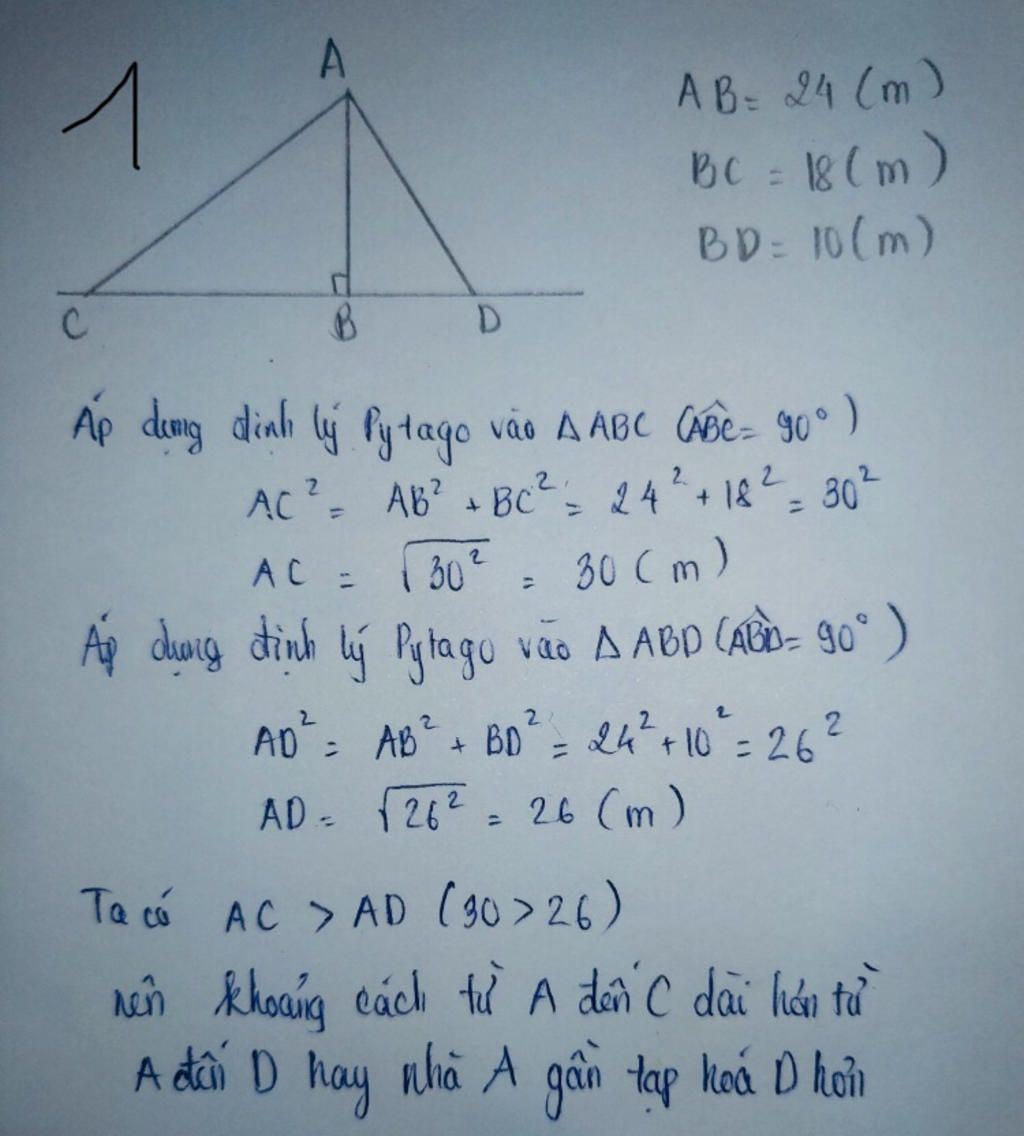 1
A
C
B
D
AB = 24 (m)
BC = 18 (m)
BD = 10 (m)
Áp dụng định lý Pytago vào Δ ABC (ABĈ = 90°)
AC² = AB² + BC² = 24² + 18² = 30²
AC = √30² = 30 (m)
Áp dụng định lý Pytago vào Δ ABD (ABD̂ = 90°)
AD² = AB² + BD² = 24² + 10² = 26²
AD = √26² = 26 (m)
Ta có AC > AD (30 > 26)
nên khoảng cách từ A đến C dài hơn từ
A đến D hay nhà A gần tạp hoá D hơn